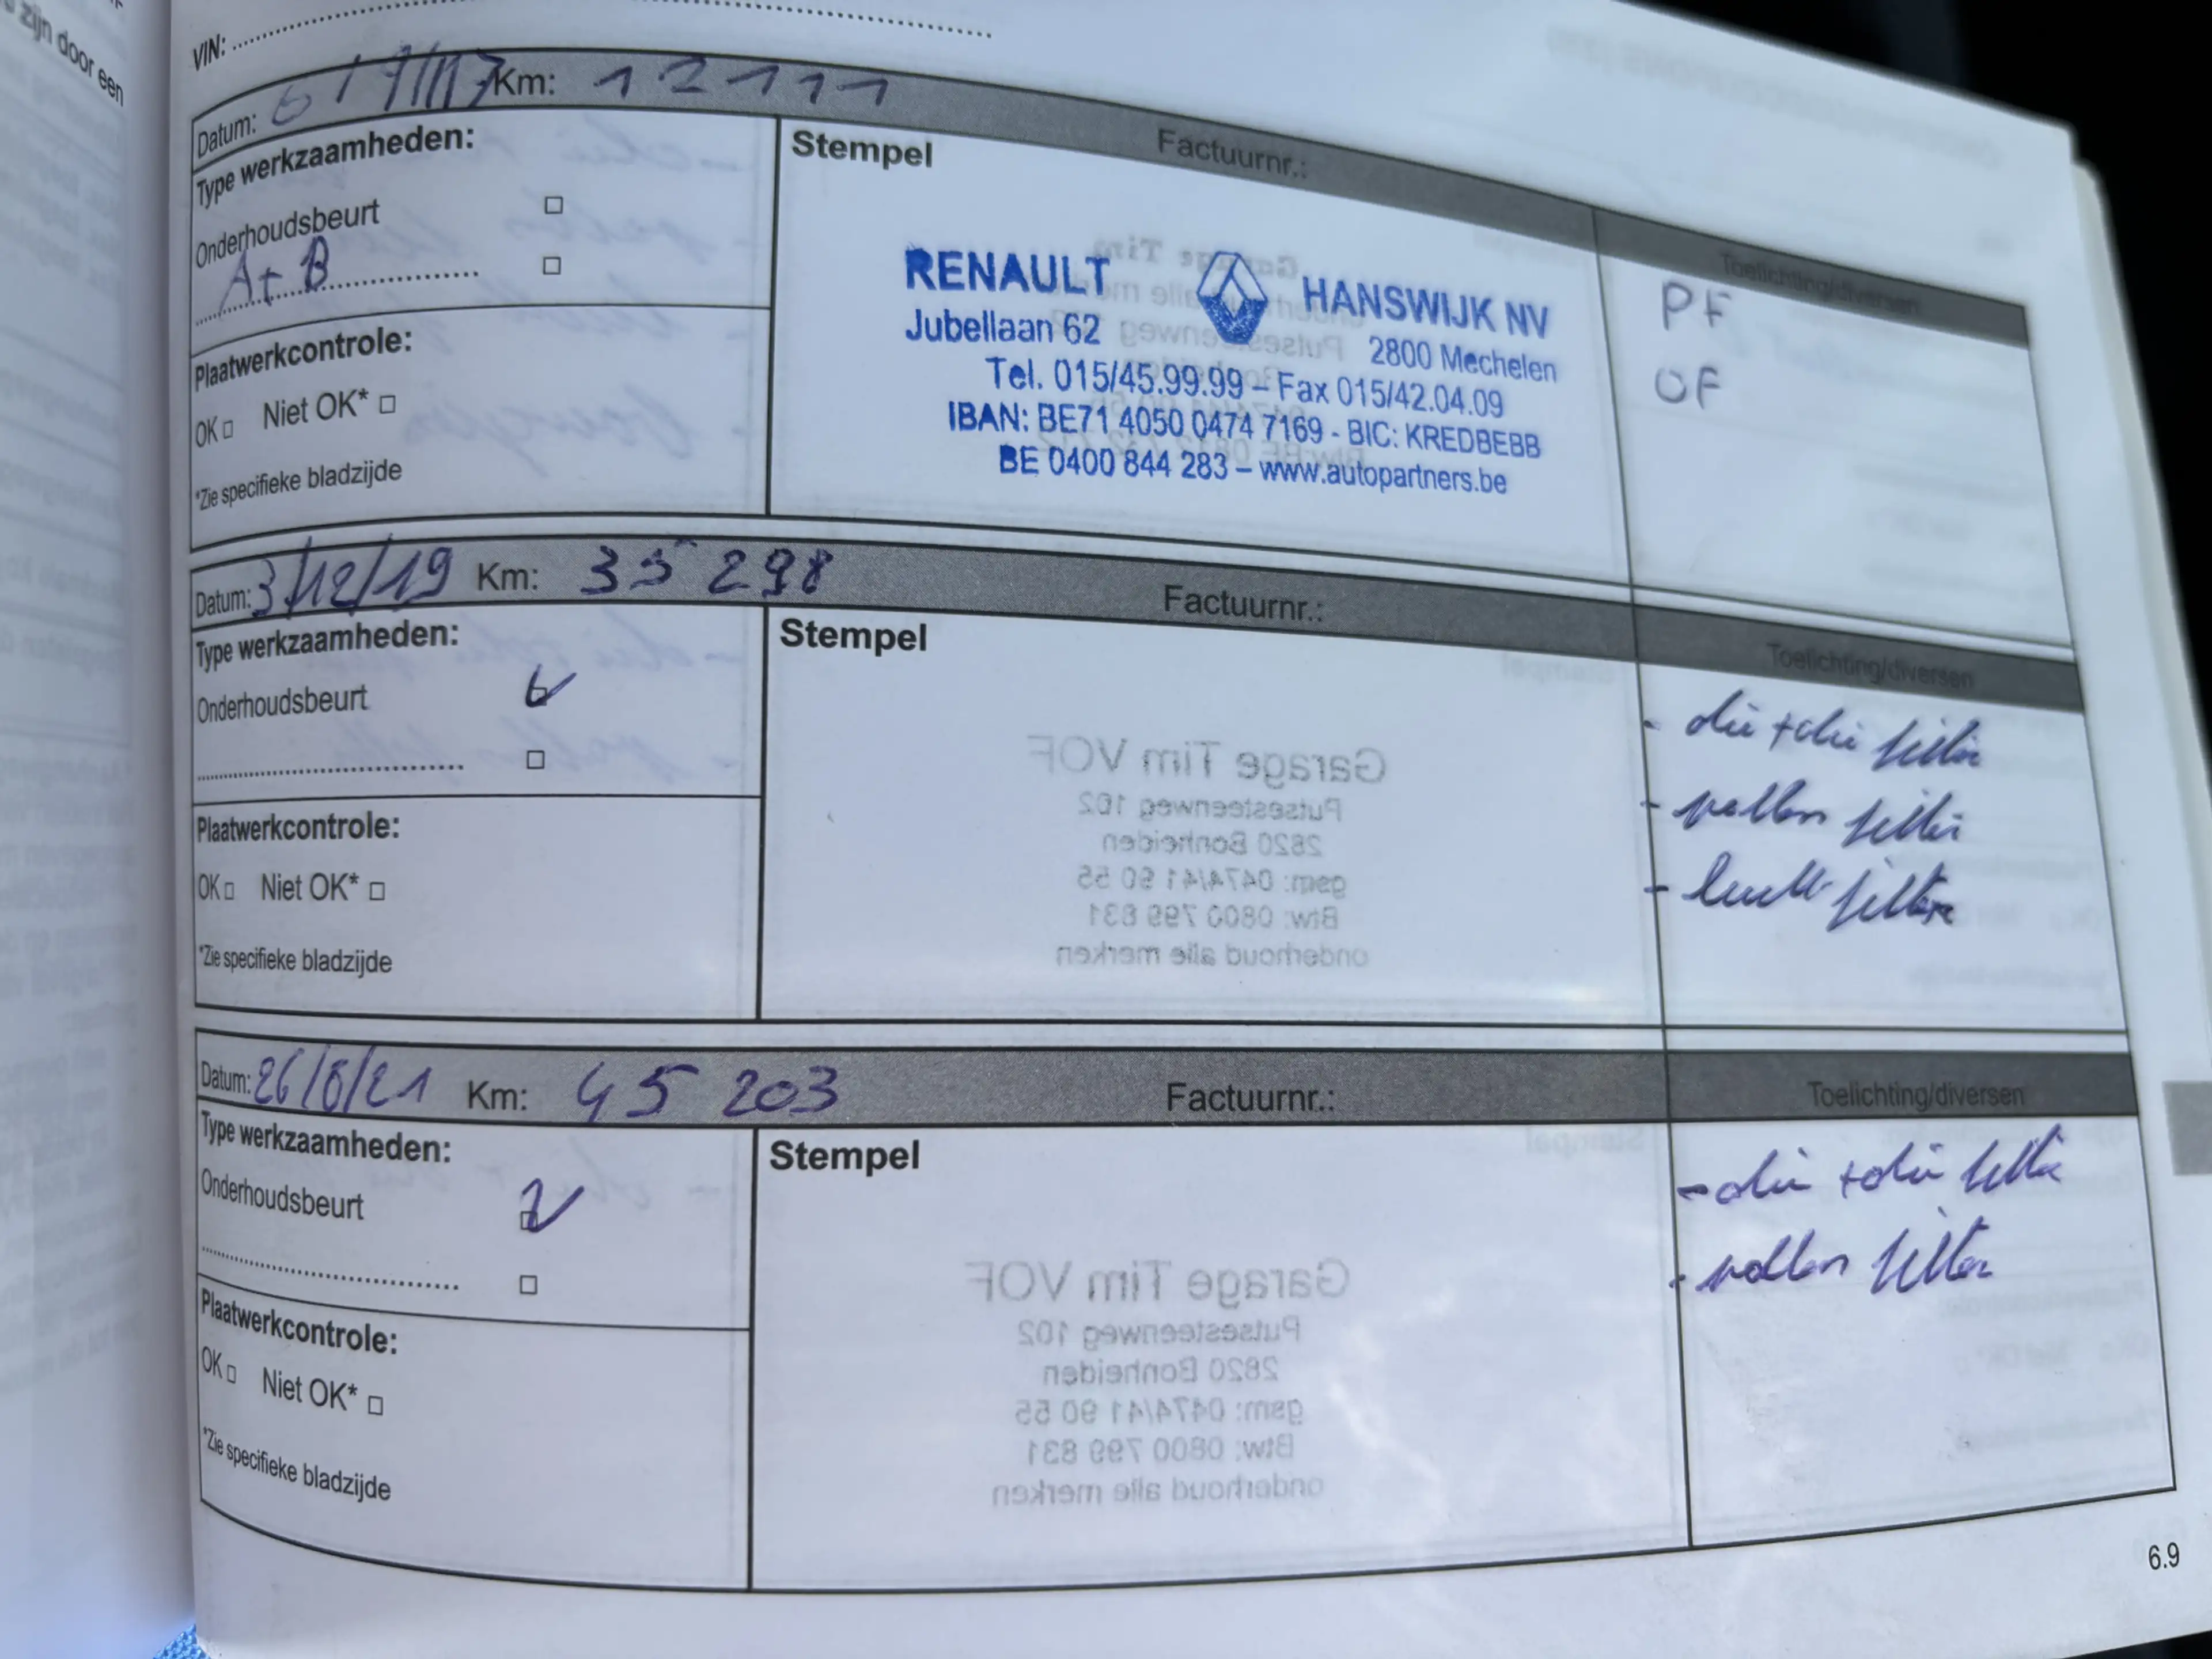 zijn door een
VIN:
Datum: 6/7/17 Km: 12111 Factuurnr.:
Type werkzaamheden:
Onderhoudsbeurt
A+B
Plaatwerkcontrole:
OK Niet OK*
*Zie specifieke bladzijde
Stempel
RENAULT HANSWIJK NV
Jubellaan 62 2800 Mechelen
Tel. 015/45.99.99 – Fax 015/42.04.09
IBAN: BE71 4050 0474 7169 - BIC: KREDBEBB
BE 0400 844 283 – www.autopartners.be
Toelichting/diversen
PF
OF
Datum: 3/12/19 Km: 35 298 Factuurnr.:
Type werkzaamheden:
Onderhoudsbeurt
Plaatwerkcontrole:
OK Niet OK*
*Zie specifieke bladzijde
Stempel
Garage Tim VOF
Putsesteenweg 102
2820 Bonheiden
gsm: 0474/41 90 55
Btw: 0800 799 831
onderhoud alle merken
Toelichting/diversen
- olie + olie filter
- pollen filter
- lucht filter
Datum: 26/8/21 Km: 45 203 Factuurnr.:
Type werkzaamheden:
Onderhoudsbeurt
Plaatwerkcontrole:
OK Niet OK*
*Zie specifieke bladzijde
Stempel
Garage Tim VOF
Putsesteenweg 102
2820 Bonheiden
gsm: 0474/41 90 55
Btw: 0800 799 831
onderhoud alle merken
Toelichting/diversen
- olie + olie filter
- pollen filter
6.9